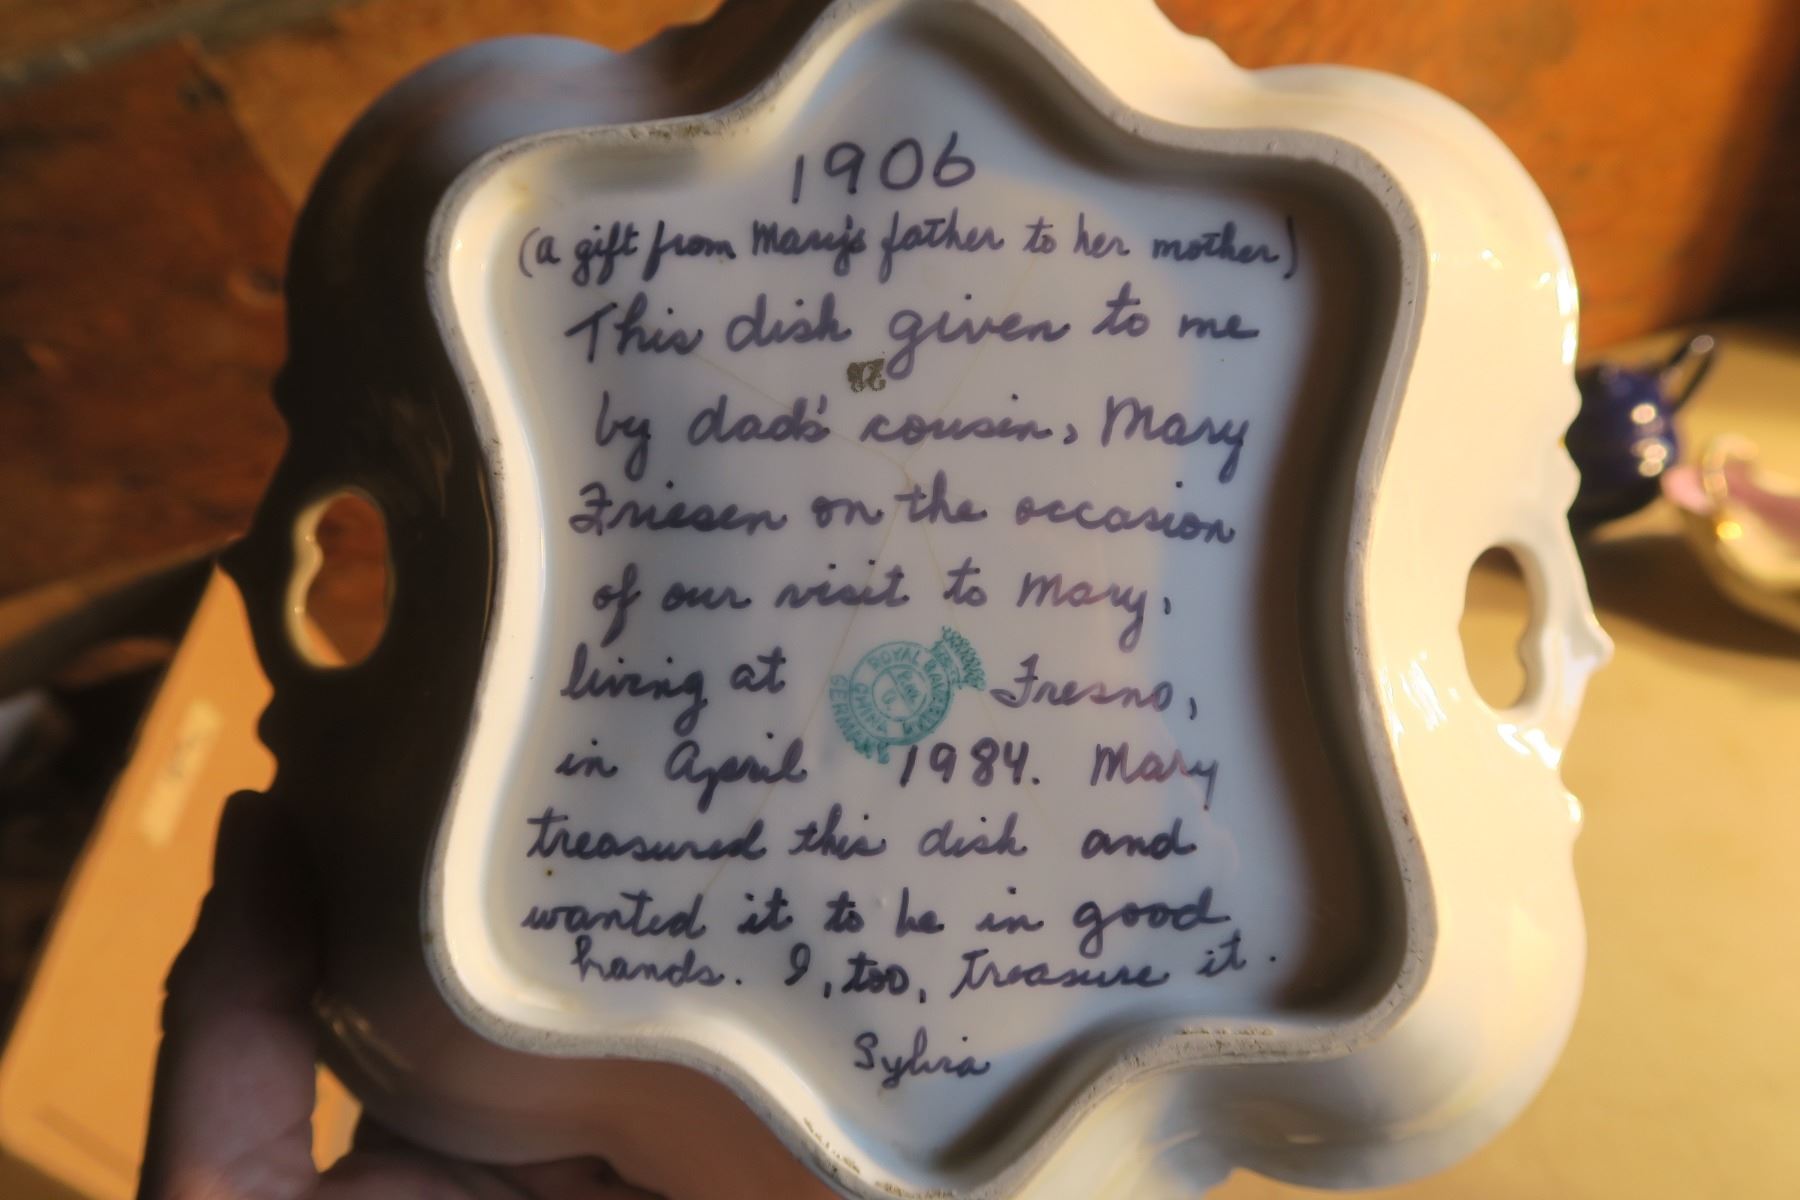 1906
(a gift from Mary's father to her mother)
This dish given to me
22
by dad's cousin, Mary
Friesen on the occasion
of our visit to Mary,
living at Fresno,
ROYAL
CHINA
GERMANY
in April 1984. Mary
treasured this dish and
wanted it to be in good
hands. I, too, treasure it.
Sylvia